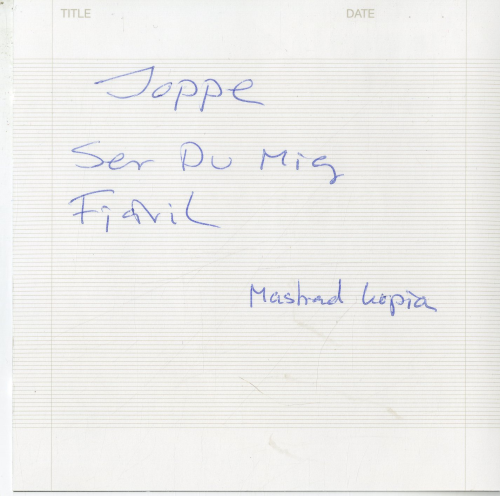 TITLE DATE
Joppe
Ser Du Mig
Fjäril
Mastrad kopia